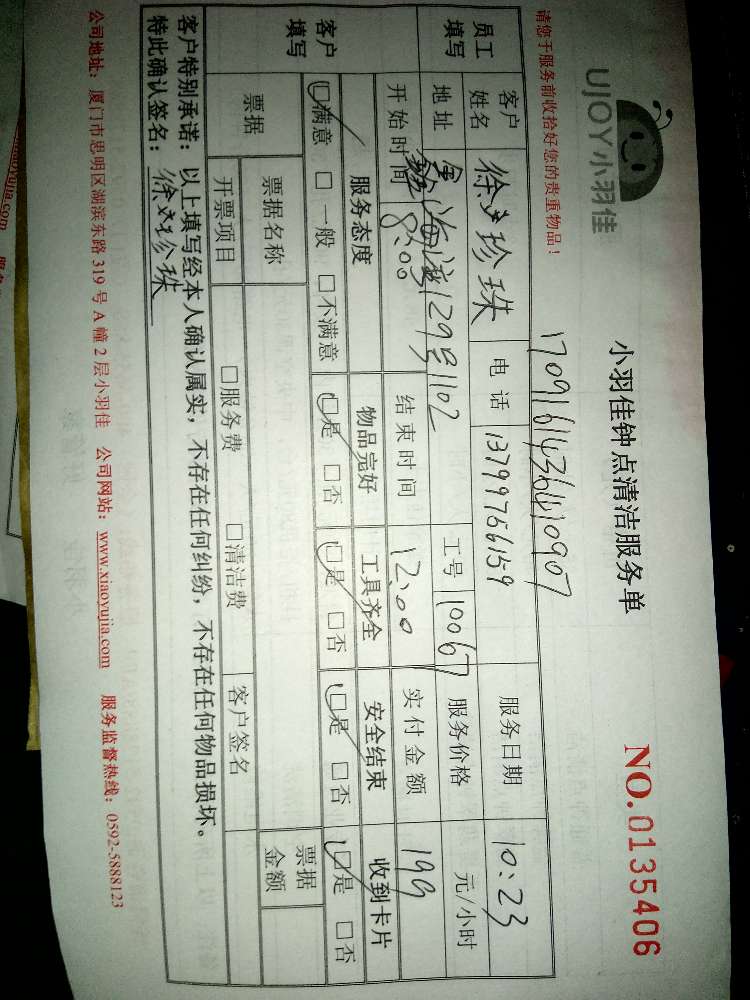 UJOY小羽佳
小羽佳钟点清洁服务单
NO.0135406
请您于服务前收拾好您的贵重物品！
1709161436410907
员工填写
客户姓名 徐 珍珠 电话 13799766159 服务日期 10:23
地址 129号1102 工号 10067 服务价格 元/小时
开始时间 8:00 结束时间 12:00 实付金额 199
客户填写
服务态度 物品完好 工具齐全 安全结束 收到卡片
□满意 □一般 □不满意 □是 □否 □是 □否 □是 □否 □是 □否
票据 票据名称 票据金额
开票项目 □服务费 □清洁费 客户签名
客户特别承诺：以上填写经本人确认属实，不存在任何纠纷，不存在任何物品损坏。
特此确认签名：徐 珍珠
公司地址：厦门市思明区湖滨东路319号A幢2层小羽佳 公司网站：www.xiaoyujia.com 服务监督热线：0592-5888123